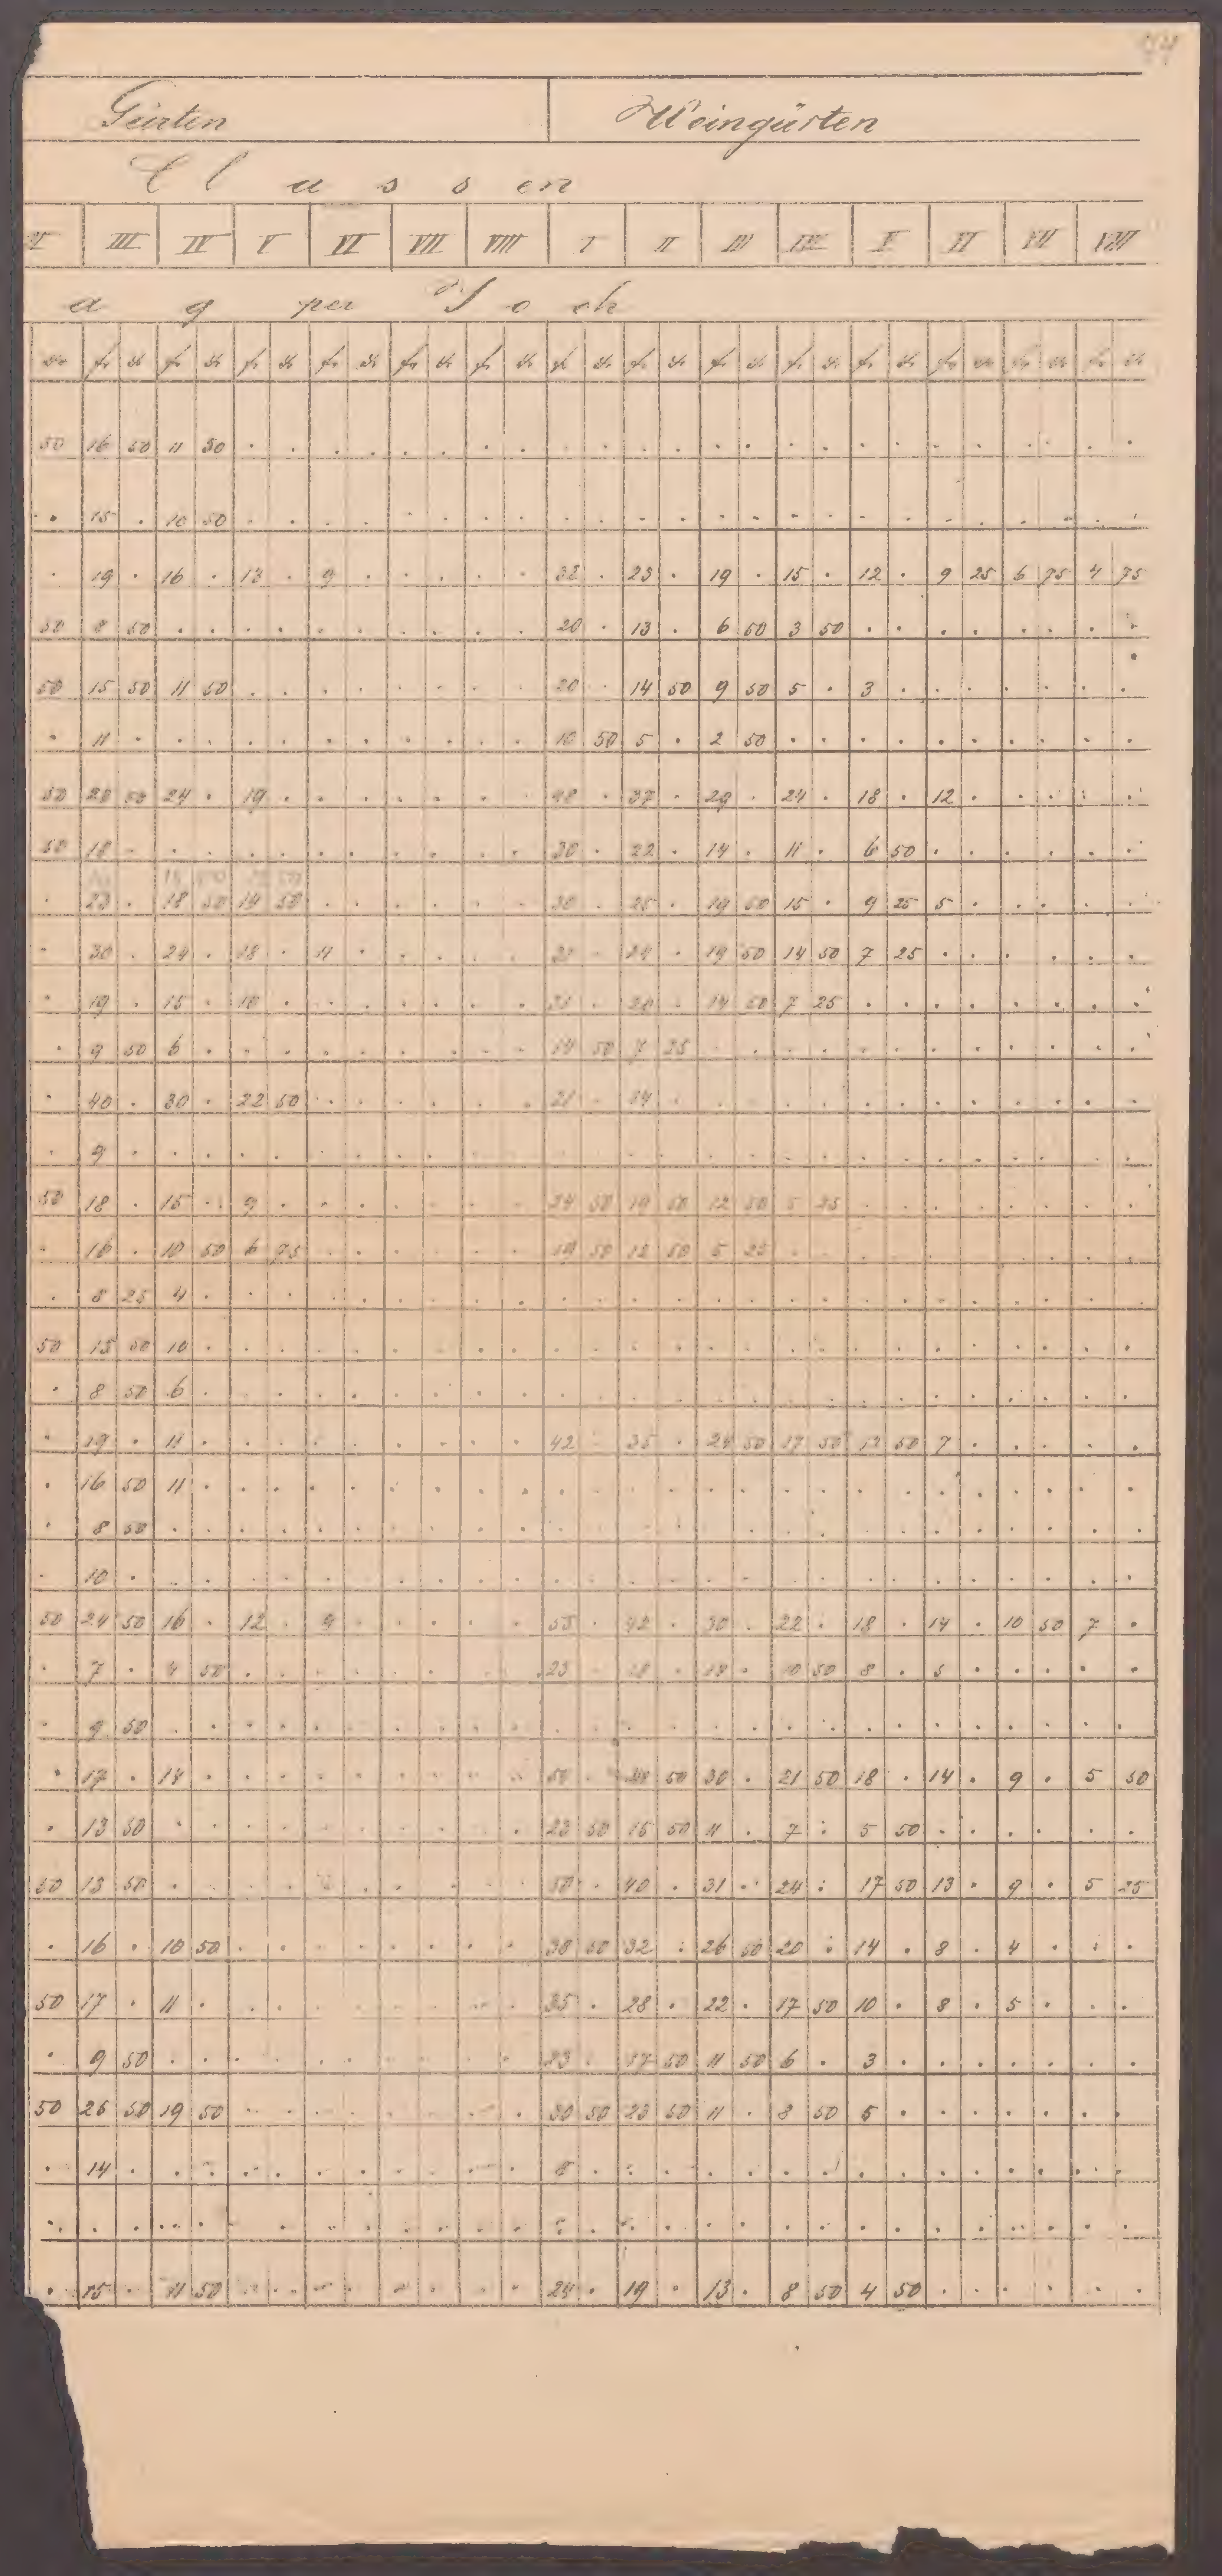 Gärten Weingärten
Classen
II III IV V VI VII VIII I II III IV V VI VII VIII
ag per Joch
kr fr kr fr kr fr kr fr kr fr kr fr kr fr kr fr kr fr kr fr kr fr kr fr kr fr kr fr kr
50 16 50 11 50 . . . . . . . . . . . . . . . . . . . . . . . .
. 15 . 10 50 . . . . . . . . . . . . . . . . . . . . . . . .
. 19 . 16 . 13 . 9 . . . . . 32 . 23 . 19 . 15 . 12 . 9 25 6 75 4 75
50 8 50 . . . . . . . . . . 20 . 13 . 6 50 3 50 . . . . . . . .
50 15 50 11 50 . . . . . . . . 20 . 14 50 9 50 5 . 3 . . . . . . .
. 11 . . . . . . . . . . . 10 50 5 . 2 50 . . . . . . . . . .
50 28 50 24 . 19 . . . . . . . 48 . 37 . 29 . 24 . 18 . 12 . . . . .
50 18 . . . . . . . . . . . 30 . 22 . 14 . 11 . 6 50 . . . . . .
. 23 . 18 50 14 50 . . . . . . 30 . 25 . 19 50 15 . 9 25 5 . . . . .
. 30 . 24 . 18 . 11 . . . . . 31 . 24 . 19 50 14 50 7 25 . . . . . .
. 19 . 15 . 10 . . . . . . . 31 . 20 . 14 50 7 25 . . . . . . . .
. 9 50 6 . . . . . . . . . 14 50 7 25 . . . . . . . . . . . .
. 40 . 30 . 22 50 . . . . . . 21 . 14 . . . . . . . . . . . . .
. 9 . . . . . . . . . . . . . . . . . . . . . . . . . . .
50 18 . 15 . 9 . . . . . . . 24 50 19 50 12 50 5 25 . . . . . . . .
. 16 . 10 50 6 75 . . . . . . 19 50 12 50 5 25 . . . . . . . . . .
. 8 25 4 . . . . . . . . . . . . . . . . . . . . . . . . .
50 15 50 10 . . . . . . . . . . . . . . . . . . . . . . . . .
. 8 50 6 . . . . . . . . . . . . . . . . . . . . . . . . .
. 19 . 11 . . . . . . . . . 42 . 35 . 24 50 17 50 12 50 7 . . . . .
. 16 50 11 . . . . . . . . . . . . . . . . . . . . . . . . .
. 8 50 . . . . . . . . . . . . . . . . . . . . . . . . . .
. 10 . . . . . . . . . . . . . . . . . . . . . . . . . . .
50 24 50 16 . 12 . 9 . . . . . 55 . 42 . 30 . 22 . 18 . 14 . 10 50 7 .
. 7 . 4 50 . . . . . . . . 23 . 18 . 13 . 10 50 8 . 5 . . . . .
. 9 50 . . . . . . . . . . . . . . . . . . . . . . . . . .
. 17 . 14 . . . . . . . . . 50 . 50 30 . 21 50 18 . 14 . 9 . 5 50
. 13 50 . . . . . . . . . . 23 50 15 50 11 . 7 . 5 50 . . . . . .
50 13 50 . . . . . . . . . . 50 . 40 . 31 . 24 . 17 50 13 . 9 . 5 25
. 16 . 10 50 . . . . . . . . 38 50 32 . 26 50 20 . 14 . 8 . 4 . . .
50 17 . 11 . . . . . . . . . 35 . 28 . 22 . 17 50 10 . 8 . 5 . . .
. 9 50 . . . . . . . . . . 23 . 17 50 11 50 6 . 3 . . . . . . .
50 26 50 19 50 . . . . . . . . 30 50 23 50 11 . 8 50 5 . . . . . . .
. 14 . . . . . . . . . . . 8 . . . . . . . . . . . . . . .
. . . . . . . . . . . . . . . . . . . . . . . . . . . . .
. 15 . 11 50 . . . . . . . . 24 . 19 . 13 . 8 50 4 50 . . . . . .